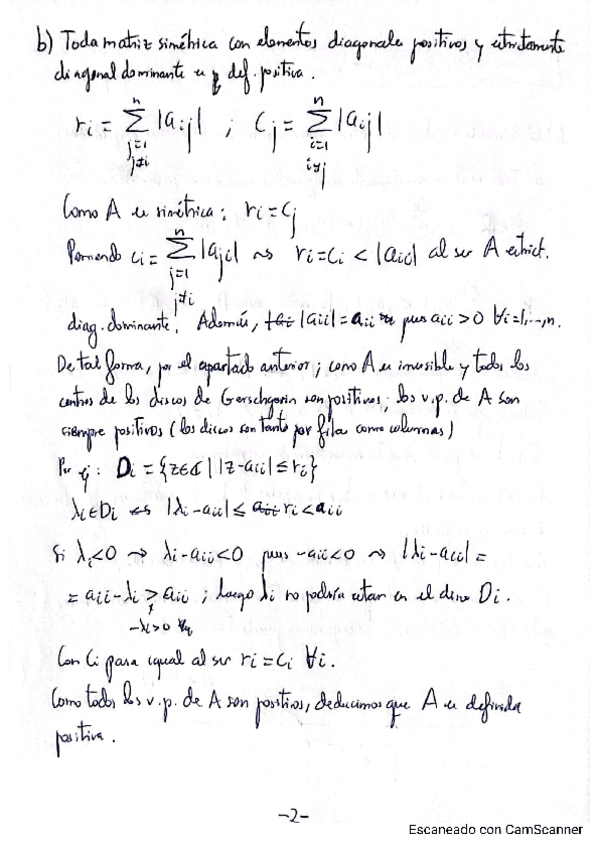 b) Toda matriz simétrica con elementos diagonales positivos y estrictamente
diagonal dominante es def. positiva.
ri = Σ_{j=1, j≠i}^{n} |aij| ; Cj = Σ_{i=1, i≠j}^{n} |aij|
Como A es simétrica: ri = Cj
Poniendo ci = Σ_{j=1, j≠i}^{n} |aji| ⇝ ri = ci < |aii| al ser A estrict.
diag. dominante. Además, |aii| = aii pues aii > 0 ∀i=1,...,n.
De tal forma, por el apartado anterior; como A es invesible y todos los
centros de los discos de Gerschgorin son positivos; los v.p. de A son
siempre positivos (los discos son tanto por filas como columnas)
Por ej: Di = {z∈ℂ | |z-aii| ≤ ri}
λi∈Di ⇔ |λi-aii| ≤ ri < aii
Si λi<0 → λi-aii<0 pues -aii<0 ⇝ |λi-aii| =
= aii-λi > aii ; luego λi no podría estar en el disco Di.
-λi>0
Con Ci para igual al ser ri = ci ∀i.
Como todos los v.p. de A son positivos, deducimos que A es definida
positiva.
-2-
Escaneado con CamScanner